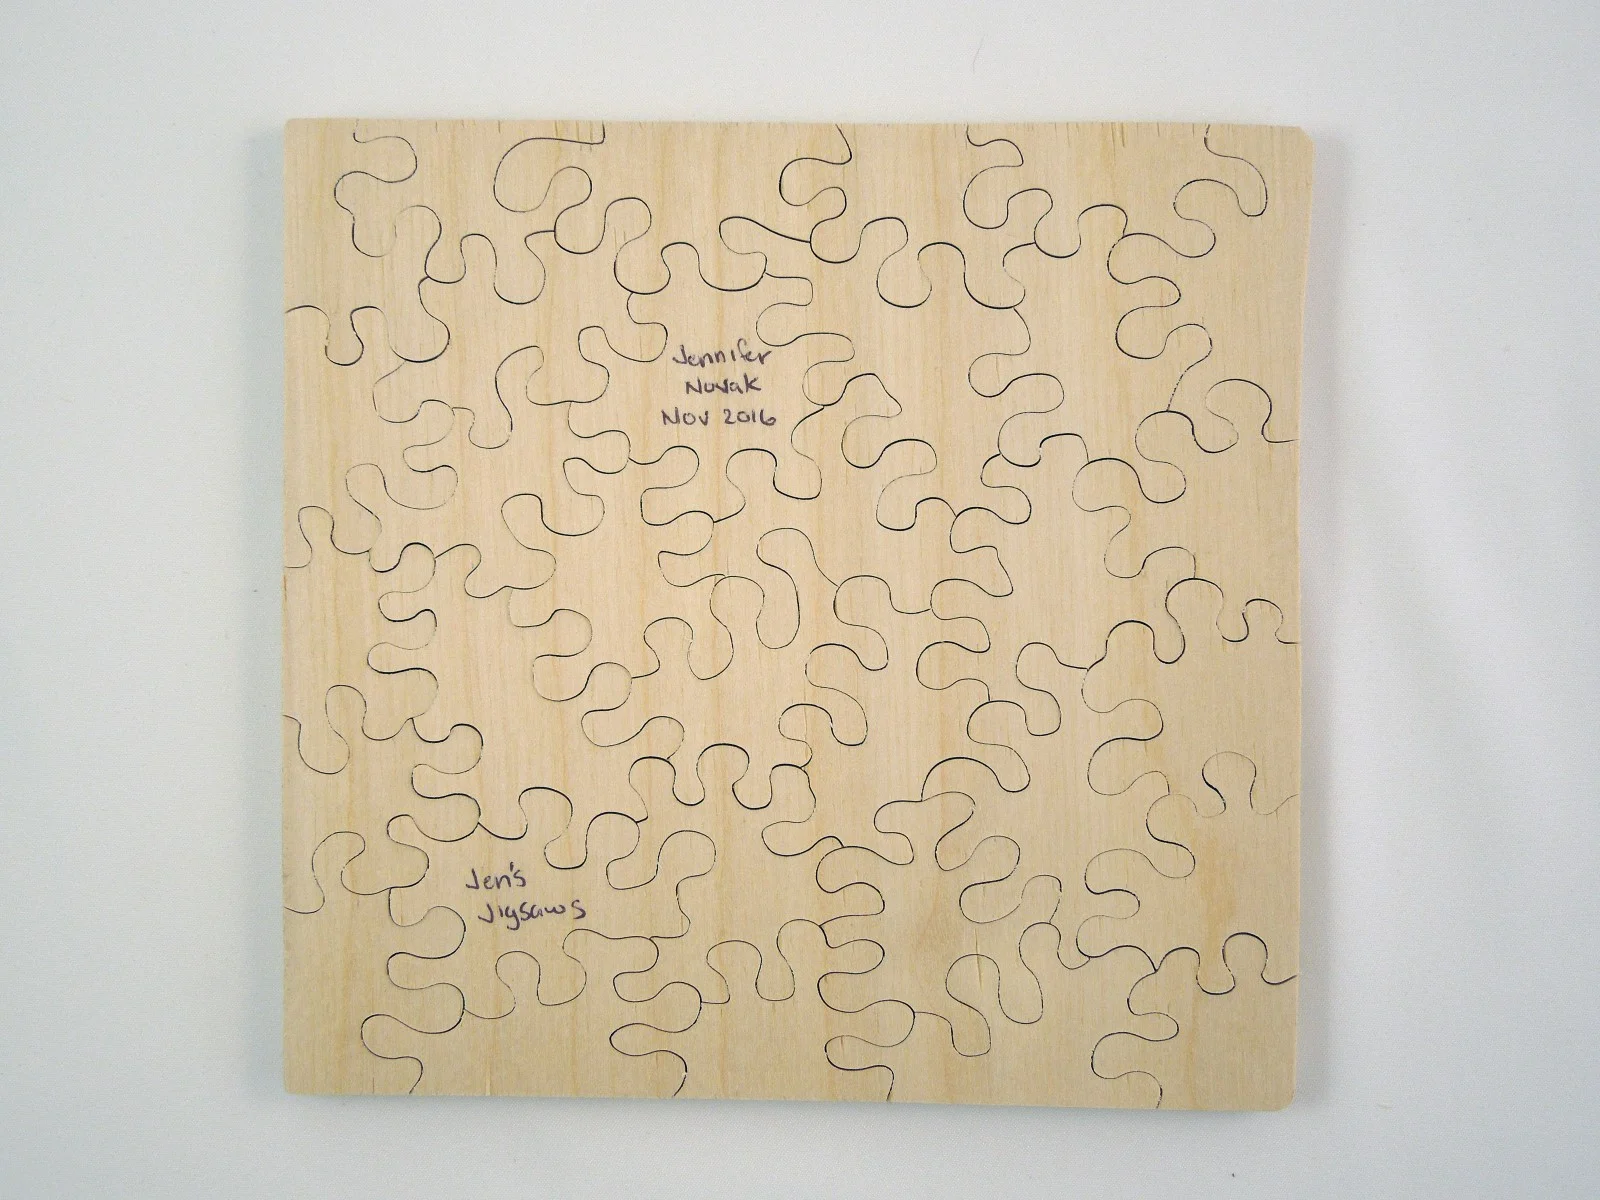 Jennifer
Novak
Nov 2016
Jen's
Jigsaws